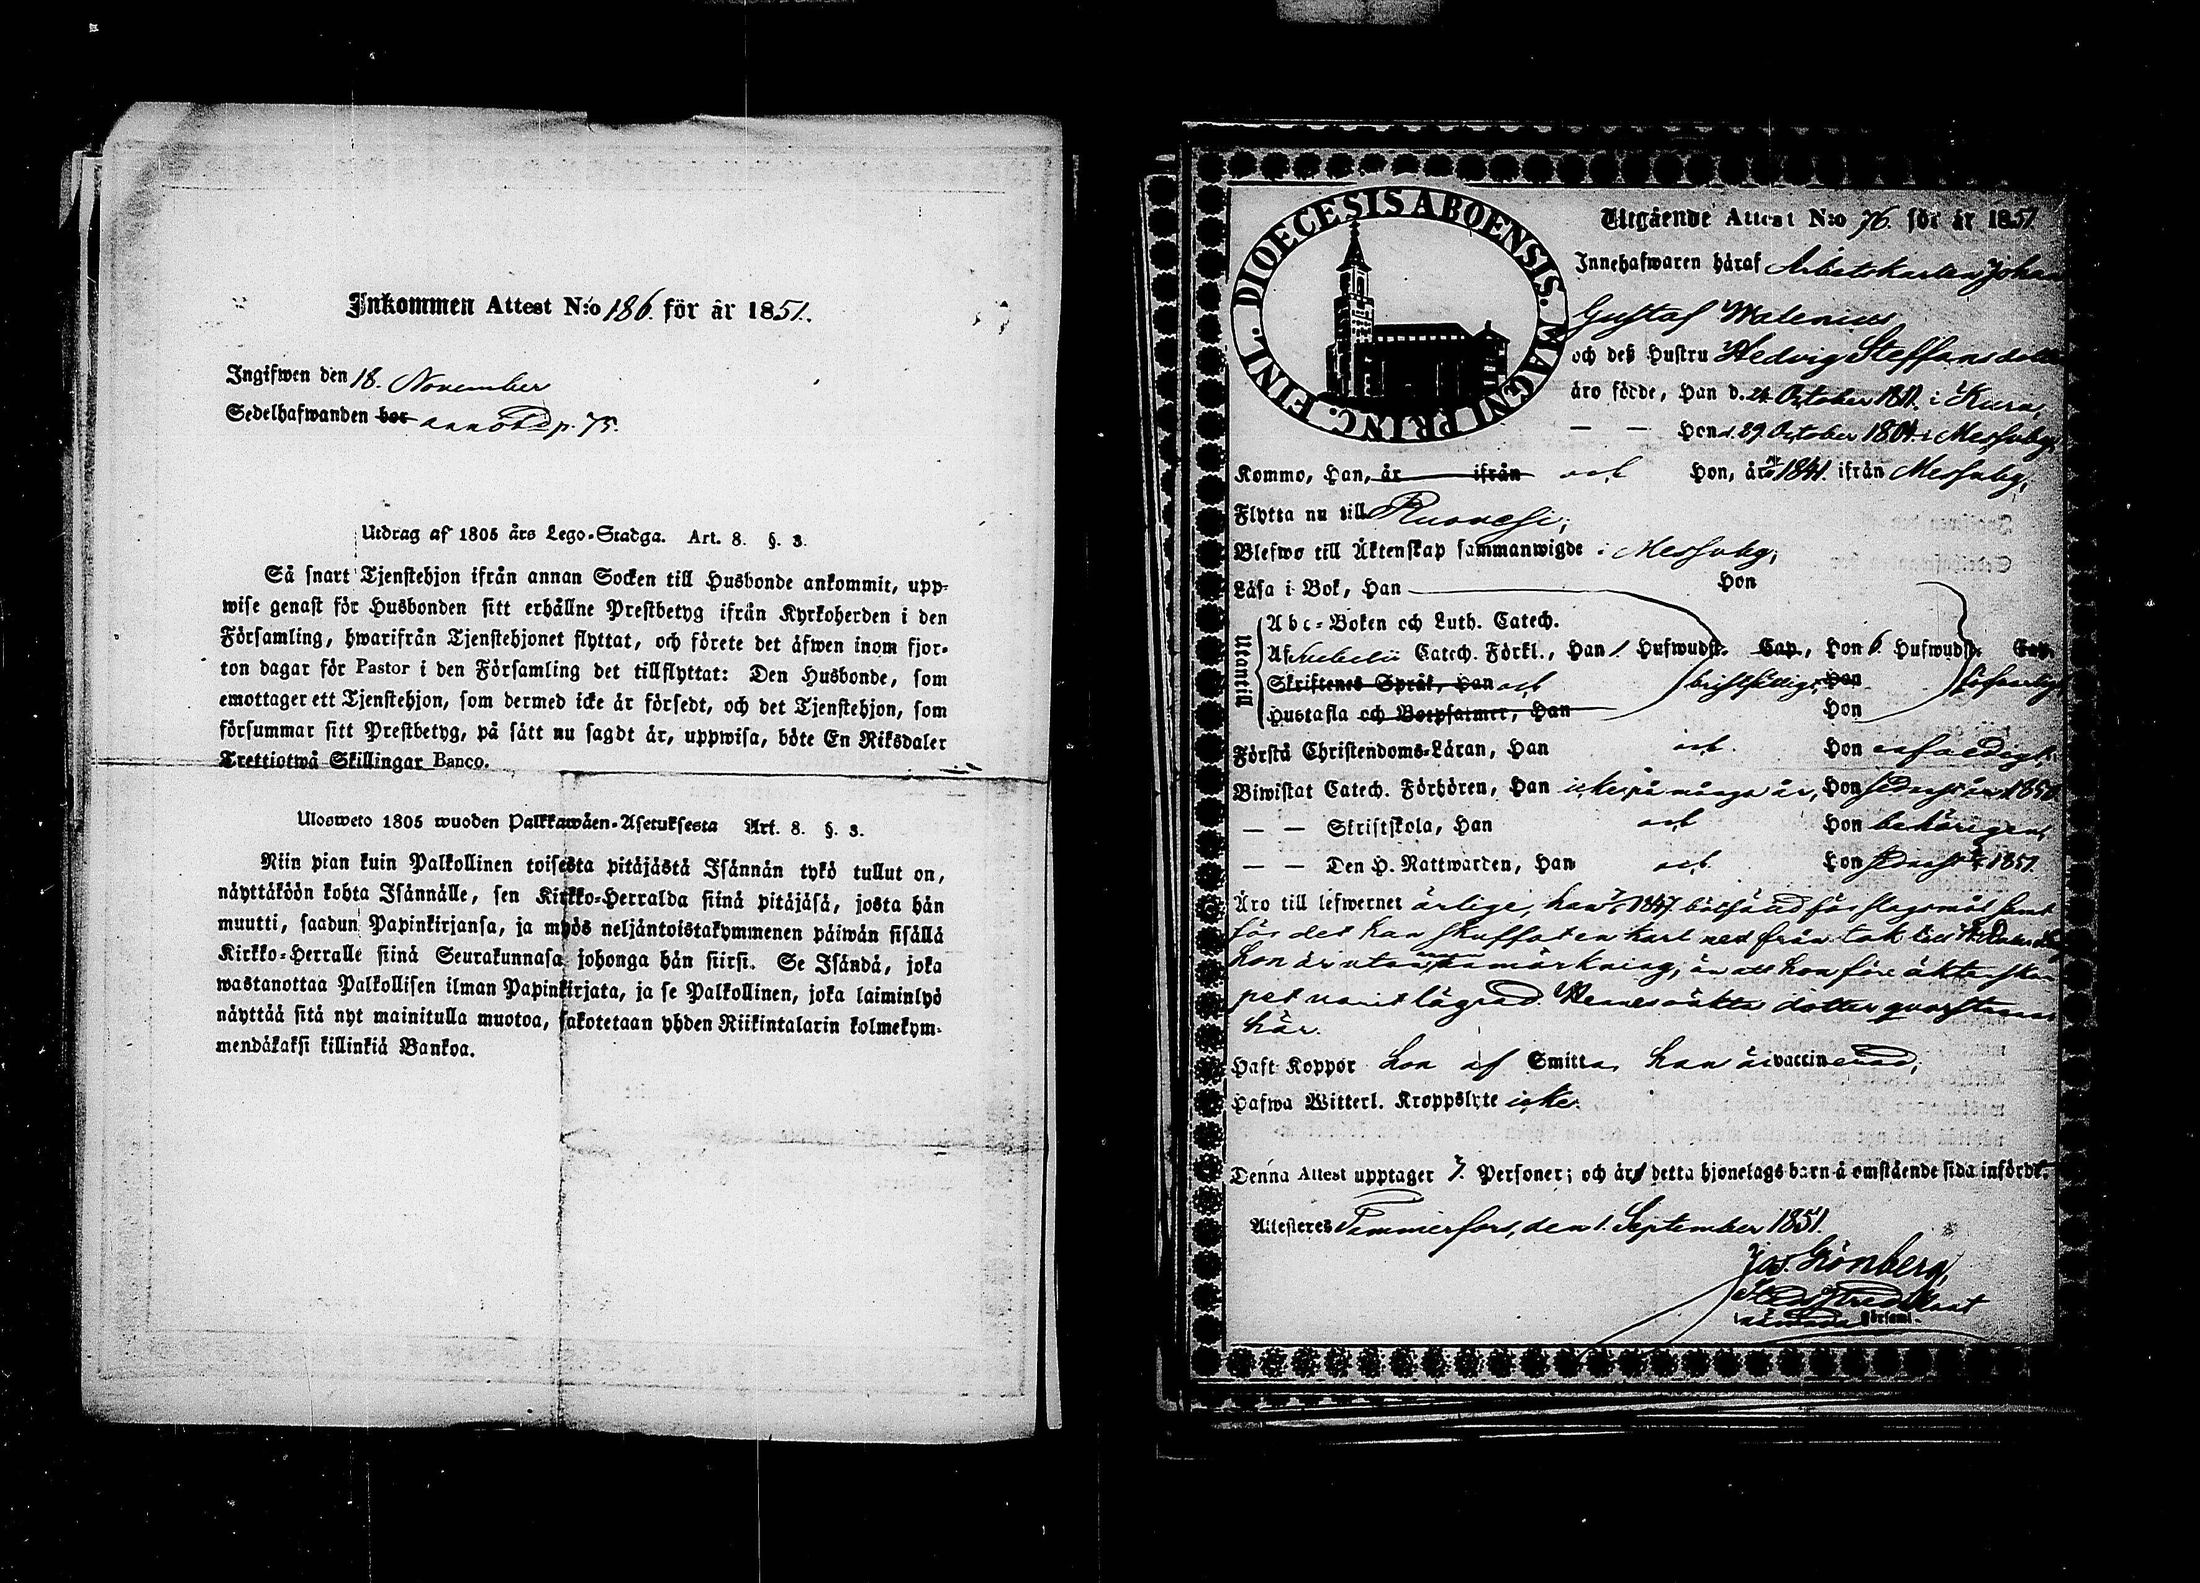 Inkommen Attest N:o 186. för år 1851.
Ingifwen den 18. November
Sedelhafwanden bor annot. p. 75.
Utdrag af 1805 års Lego-Stadga. Art. 8. §. 3.
Så snart Tjenstehjon ifrån annan Socken till Husbonde ankommit, upp-
wise genast för Husbonden sitt erhållne Prestbetyg ifrån Kyrkoherden i den
Församling, hwarifrån Tjenstehjonet flyttat, och förete det äfwen inom fjor-
ton dagar för Pastor i den Församling det tillflyttat: Den Husbonde, som
emottager ett Tjenstehjon, som dermed icke är försedt, och det Tjenstehjon, som
försummar sitt Prestbetyg, på sätt nu sagdt är, uppwisa, böte En Riksdaler
Trettiotwå Skillingar Banco.
Ulosweto 1805 wuoden Palkkawäen-Asetuksesta Art. 8. §. 3.
Niin pian kuin Palkollinen toisesta pitäjästä Isännän tykö tullut on,
näyttäköön kohta Isännälle, sen Kirkko-Herralda siinä pitäjäsä, josta hän
muutti, saadun Papinkirjansa, ja myös neljäntoistakymmenen päiwän sisällä
Kirkko-Herralle siinä Seurakunnasa johonga hän siirsi. Se Isändä, joka
wastanottaa Palkollisen ilman Papinkirjata, ja se Palkollinen, joka laiminlyö
näyttää sitä nyt mainitulla muotoa, sakotetaan yhden Riikintalarin kolmekym-
mendäkaksi killinkiä Bankoa.
FINL. DIOECESIS ABOENSIS. MAGNI PRINC.
Utgående Attest N:o 76. för år 1851.
Innehafwaren häraf Arbetskarlen Johan
Gustaf Walenius
och deß Hustru Hedvig Steffansdotter
äro födde, Han d. 24 October 1811. i Kuru,
— — Hon d. 29 October 1804. i Messuby,
Kommo, Han, år ifrån och Hon, år 1841. ifrån Messuby,
Flytta nu till Ruovesi;
Blefwo till Äktenskap sammanwigde i Messuby;
Läsa i Bok, Han Hon
Utantill
Abc-Boken och Luth. Catech.
Af Catech. Förkl., Han 1 Hufwudst. Cap., Hon 6. Hufwudst. Cap.
Skriftenes Språk, Han och bristfälligt, Hon
Hustafla och Botpsalmer, Han Hon
Förstå Christendoms-Läran, Han och Hon enfaldigt;
Biwistat Catech. Förhören, Han icke på många år, Hon sednast år 1850
— — Skriftskola, Han och Hon behörigen,
— — Den H. Nattwarden, Han och Hon sednast 1851.
Äro till lefwernet ärlige; han 1847. bötfälld för slagsmål samt
för det han skuffat en karl ned från tak
hon är utan anmärkning, än att hon före äktenska
pet varit lägrad. Hennes oäkta dotter qvarstannar
här.
Haft Koppor hon af Smitta, han är vaccinerad;
Hafwa Witterl. Kroppslyte icke.
Denna Attest upptager Personer; och är detta hjonelags barn å omstående sida infördt.
Attesteres Tammerfors, den 1. September 1851.
Jos. Grönberg,
i Församl.